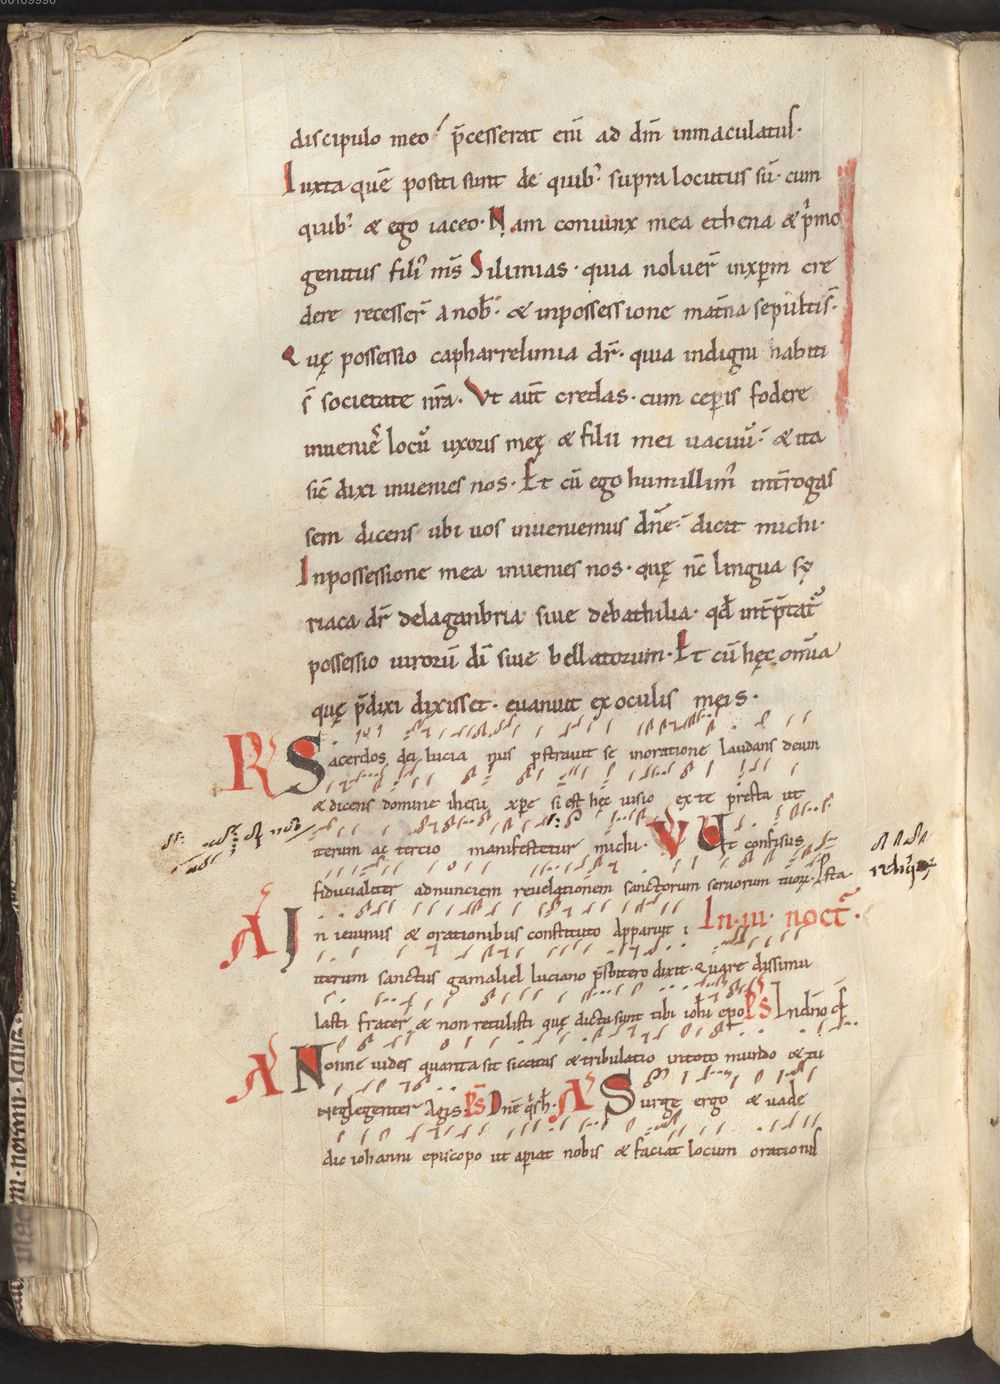 discipulo meo / p̄cesserat eni̅ ad dn̄m inmaculatus·
Iuxta que̅ positi sunt de quib; supra locutus su̅· cum
quib; & ego iaceo· Nam coniunx mea ethena & p̍mo
genitus fili᷒ m̅s Silimias· quia noluer̄ inxp̄m cre
dere recesser̄ a nob̄· & inpossessione mat̄na sepulti s̄·
Quę possessio capharrelimia dr̄· quia indigni habiti
s̄ societate nr̄a· Vt aut̄ credas· cum ceperis fodere
invenie̅ locu̅ uxoris meę & filii mei vacuu̅· & ita
sic̄ dixi invenies nos· Et cu̅ ego humillim᷒ int̄rogas
sem dicens ubi vos inveniemus dn̄e· dicit michi·
Inpossessione mea invenies nos· quę nc̄ lingua sy
riaca dr̄ delagabria sive debathilia· qd̄ int̄p̄tat᷒
possessio virorū dī sive bellatorum· Et cu̅ hęc om̄ia
quę p̄dixi dixisset· evanuit ex oculis meis·
R Sacerdos dei lucia nus prostravit se inoratione laudans deum
& dicens domine ihesu xp̄e si est hęc visio ex te presta ut
iterum ac tercio manifestetur michi· V Ut confisus
fiducialiter adnunciem revelationem sanctorum servorum tuor̄· Psta
reliq̄
A In ieiunus & orationibus constituto apparuit i In· iii· noct̄·
iterum sanctus gamaliel luciano p̄sbitero dixit· Quare dissimu
lasti frater & non retulisti quę dicta sunt tibi ioh̄i epo Ps̄ Indn̄o cf̄
A Nonne vides quanta sit siccitas & tribulatio intoto mundo & tu
neglegenter agis· Ps̄ Dn̄e q̍s h̄· A Surge ergo & vade
dic iohanni episcopo ut aperiat nobis & faciat locum orationis